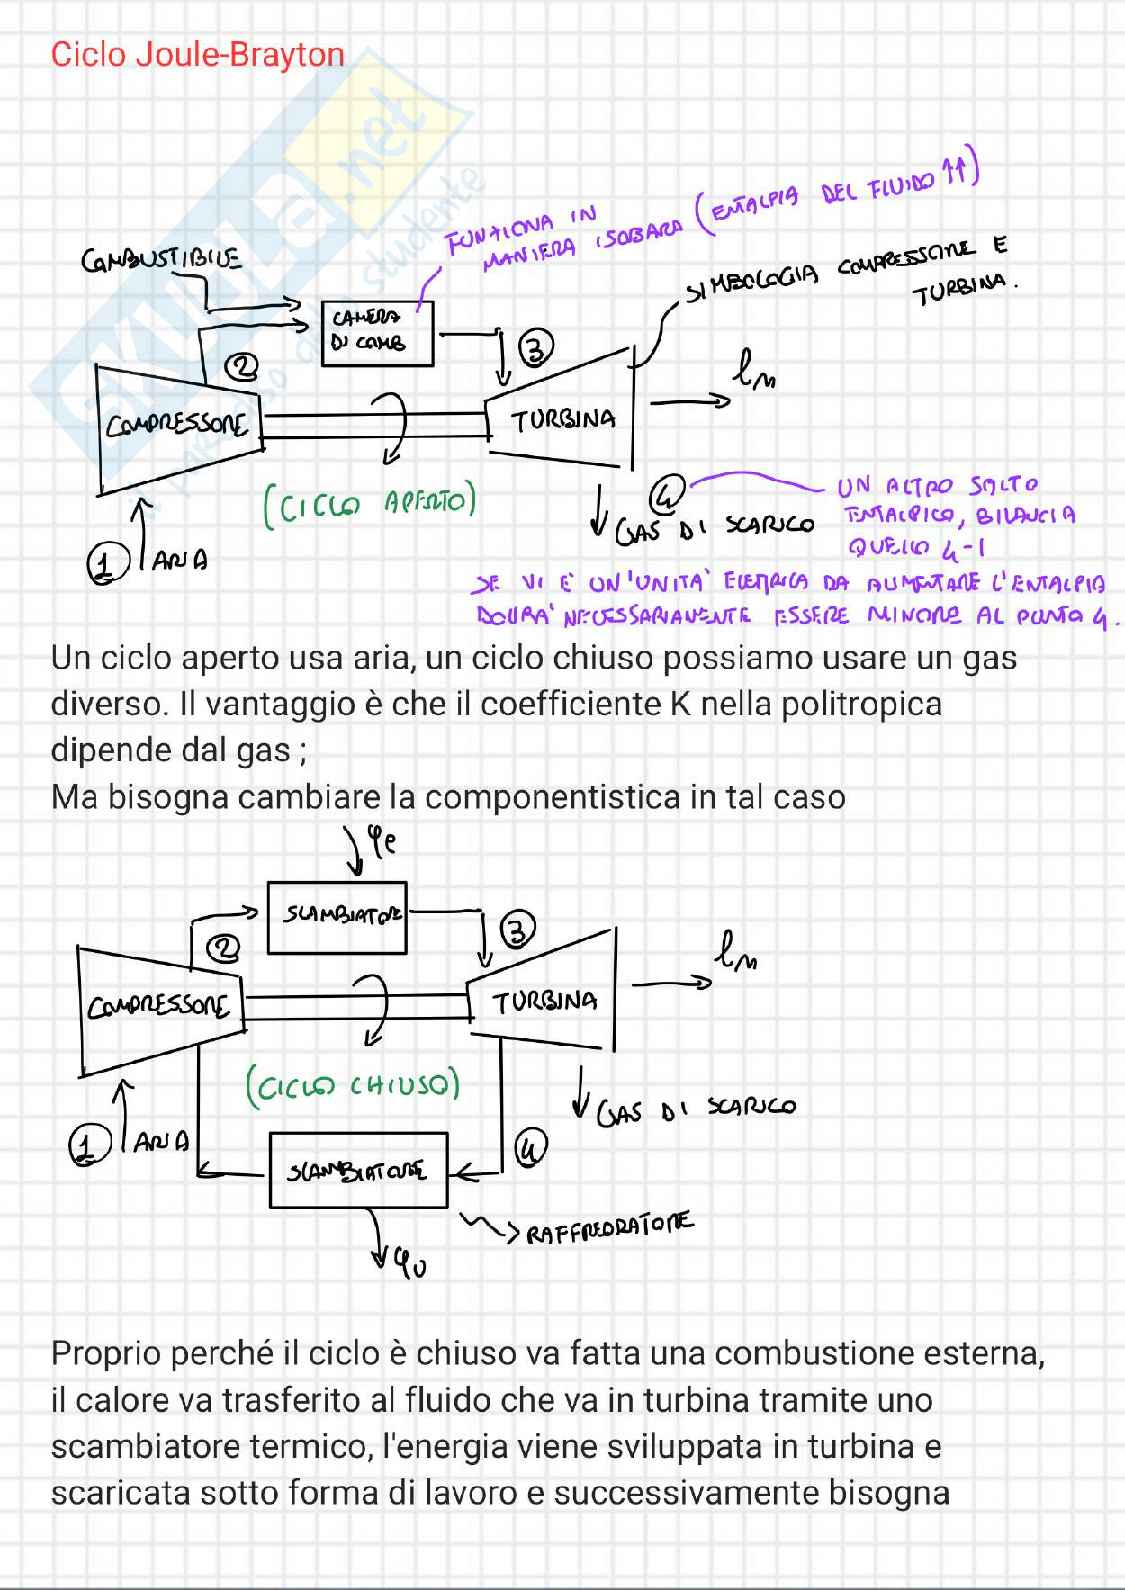 Ciclo Joule-Brayton
SKUOLA.net
FUNZIONA IN
MANIERA ISOBARA (ENTALPIA DEL FLUIDO ↑↑)
COMBUSTIBILE
SIMBOLOGIA COMPRESSORE E
TURBINA.
CAMERA
DI COMB
2
3
lm
COMPRESSORE
TURBINA
(CICLO APERTO)
4
UN ALTRO SALTO
ENTALPICO, BILANCIA
QUELLO 4-1
GAS DI SCARICO
1 ARIA
SE VI È UN'UNITÀ ELETTRICA DA AUMENTARE L'ENTALPIA
DOVRA' NECESSARIAMENTE ESSERE MINORE AL PUNTO 4.
Un ciclo aperto usa aria, un ciclo chiuso possiamo usare un gas
diverso. Il vantaggio è che il coefficiente K nella politropica
dipende dal gas ;
Ma bisogna cambiare la componentistica in tal caso
φe
SCAMBIATORE
2
3
lm
COMPRESSORE
TURBINA
(CICLO CHIUSO)
GAS DI SCARICO
1 ARIA
4
SCAMBIATORE
RAFFREDDATORE
φu
Proprio perché il ciclo è chiuso va fatta una combustione esterna,
il calore va trasferito al fluido che va in turbina tramite uno
scambiatore termico, l'energia viene sviluppata in turbina e
scaricata sotto forma di lavoro e successivamente bisogna